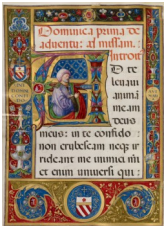 Dominica prima de
aduentu: ad missam.
Introit
D te
leuaui
animā
meam
deus
meus: in te confido
non erubescam neq3 ir
rideant me inimici mi
et enim uniuersi qui